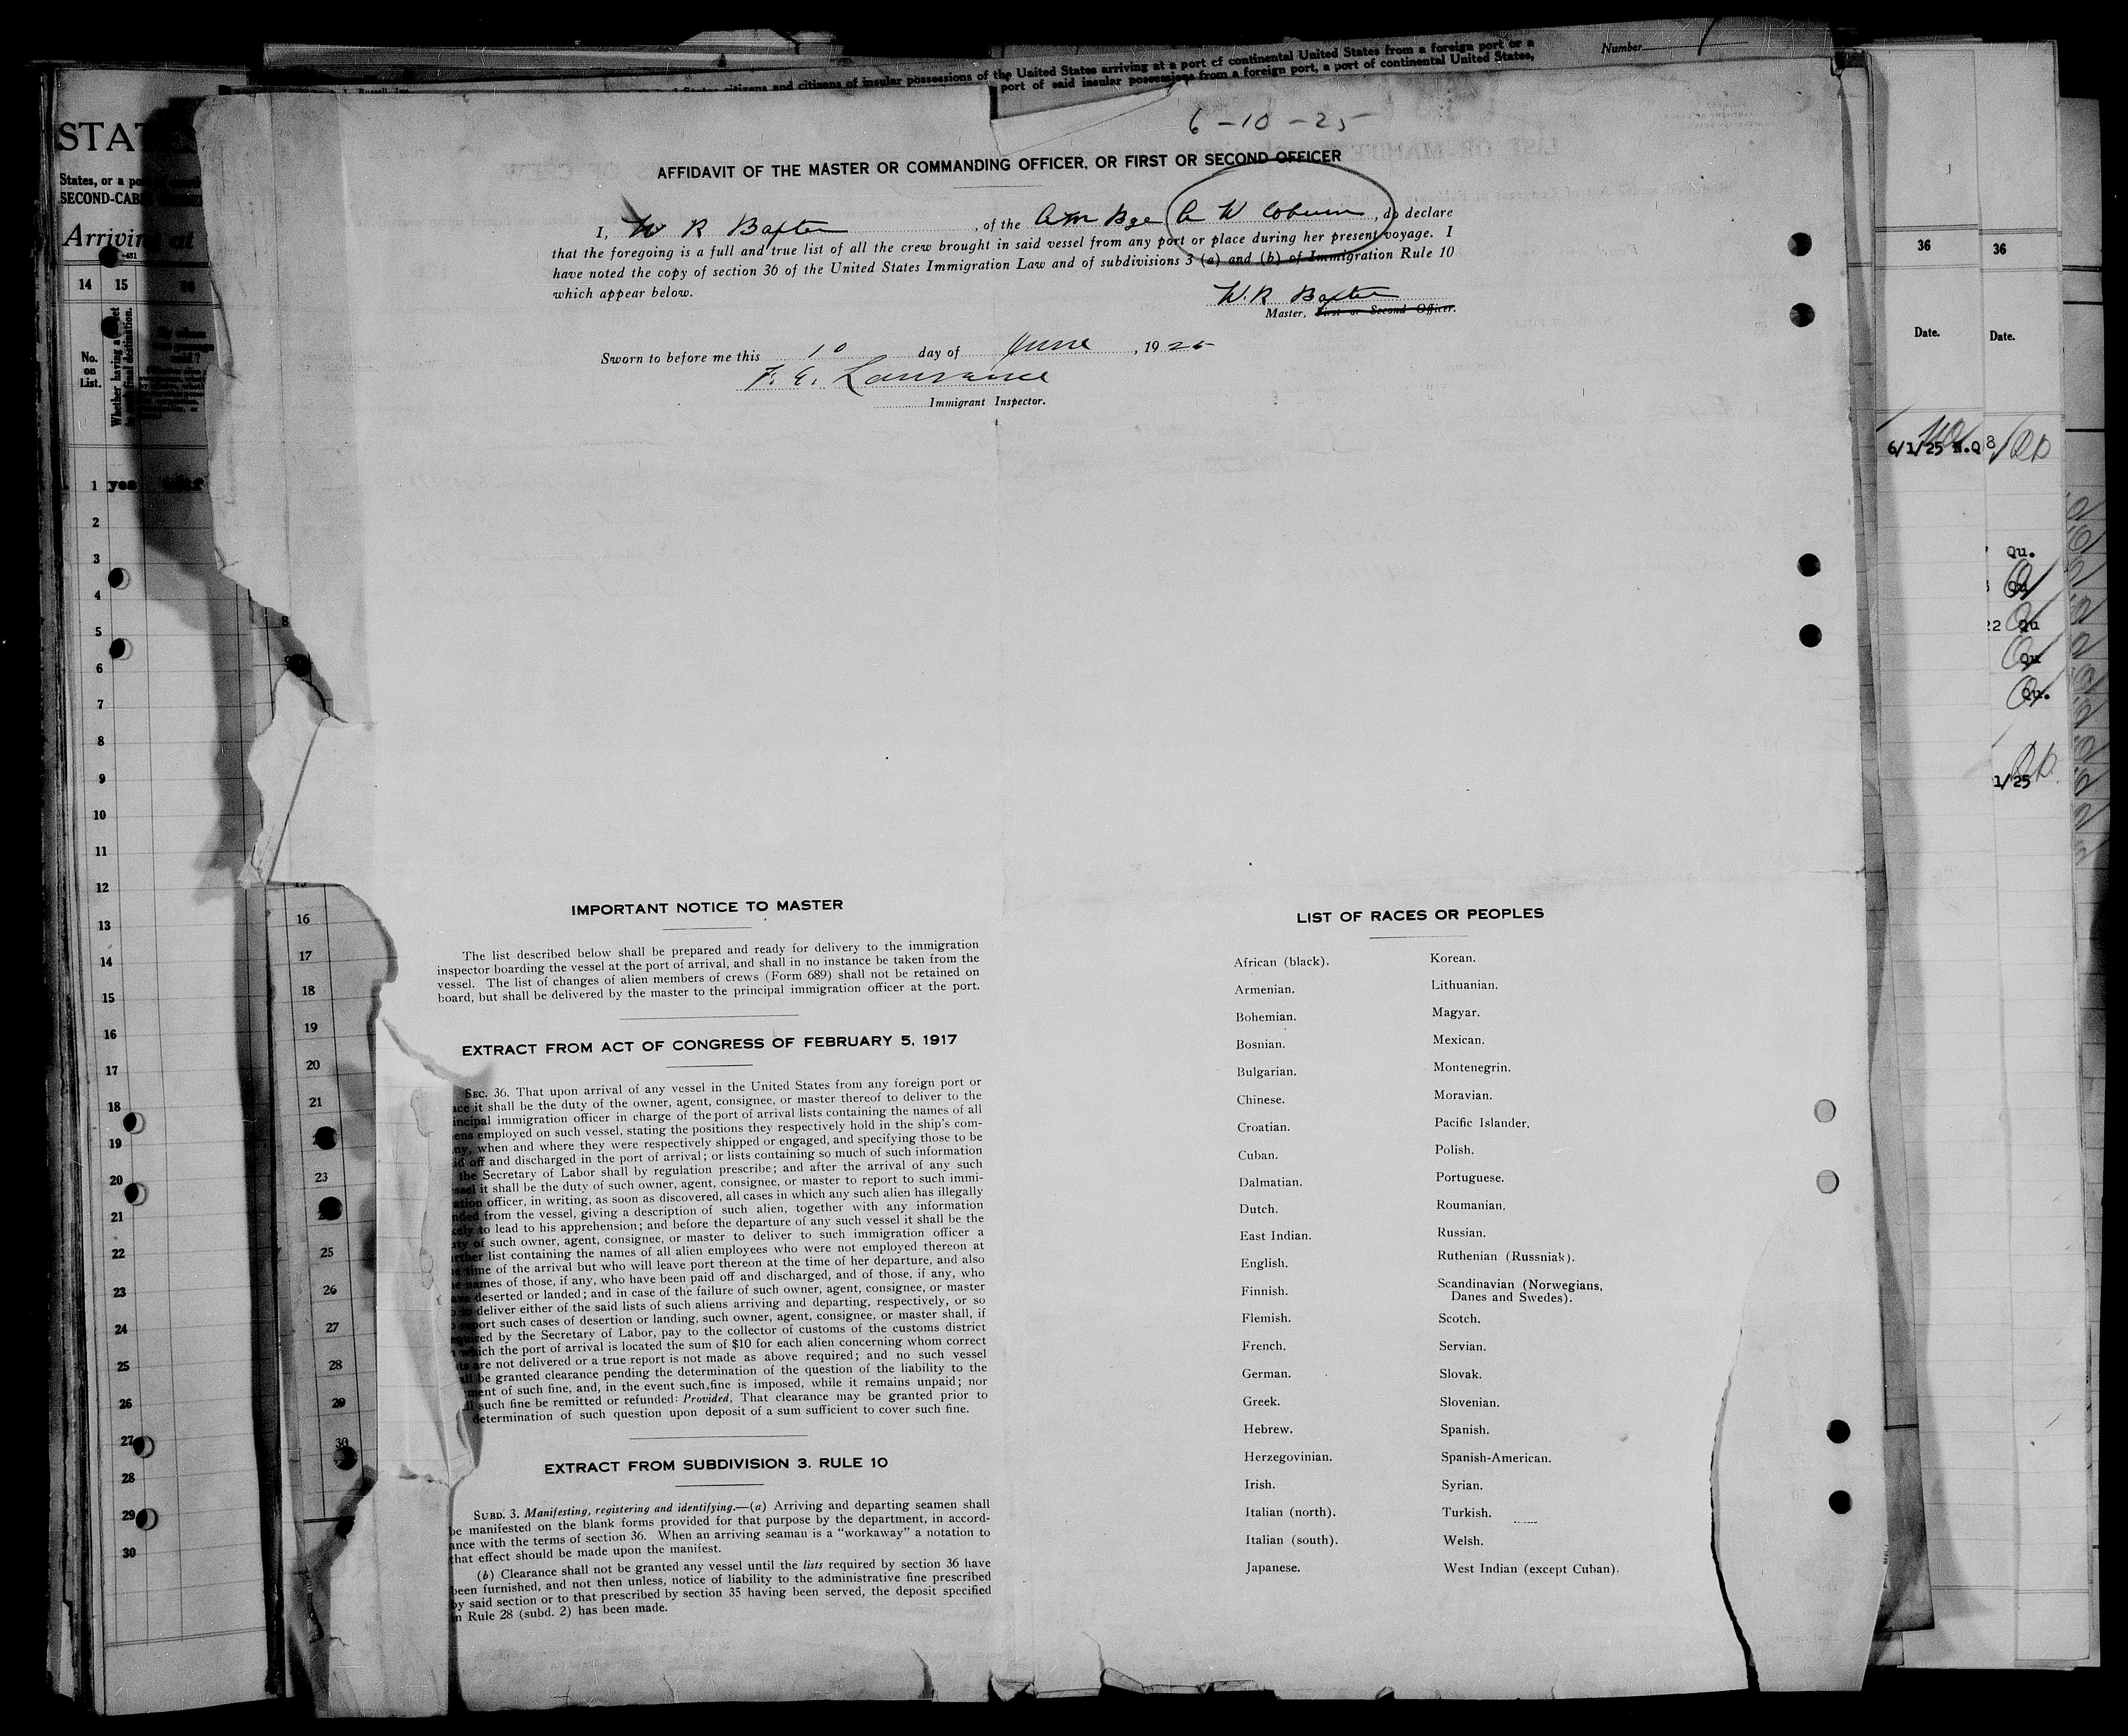 Number
States citizens and citizens of insular possessions of the United States arriving at a port of continental United States from a foreign port or a
port of said insular possessions from a foreign port, a port of continental United States,
6-10-25
AFFIDAVIT OF THE MASTER OR COMMANDING OFFICER, OR FIRST OR SECOND OFFICER
I, W R Baxter, of the Am Bge A W Coburn, do declare
that the foregoing is a full and true list of all the crew brought in said vessel from any port or place during her present voyage. I
have noted the copy of section 36 of the United States Immigration Law and of subdivisions 3 (a) and (b) of Immigration Rule 10
which appear below.
W. R Baxter
Master, First or Second Officer.
Sworn to before me this 10 day of June, 1925
F. E. Lawrance
Immigrant Inspector.
IMPORTANT NOTICE TO MASTER
The list described below shall be prepared and ready for delivery to the immigration
inspector boarding the vessel at the port of arrival, and shall in no instance be taken from the
vessel. The list of changes of alien members of crews (Form 689) shall not be retained on
board, but shall be delivered by the master to the principal immigration officer at the port.
EXTRACT FROM ACT OF CONGRESS OF FEBRUARY 5, 1917
SEC. 36. That upon arrival of any vessel in the United States from any foreign port or
ace it shall be the duty of the owner, agent, consignee, or master thereof to deliver to the
incipal immigration officer in charge of the port of arrival lists containing the names of all
ens employed on such vessel, stating the positions they respectively hold in the ship's com-
ny, when and where they were respectively shipped or engaged, and specifying those to be
id off and discharged in the port of arrival; or lists containing so much of such information
the Secretary of Labor shall by regulation prescribe; and after the arrival of any such
ssel it shall be the duty of such owner, agent, consignee, or master to report to such immi-
ation officer, in writing, as soon as discovered, all cases in which any such alien has illegally
nded from the vessel, giving a description of such alien, together with any information
ely to lead to his apprehension; and before the departure of any such vessel it shall be the
ty of such owner, agent, consignee, or master to deliver to such immigration officer a
rther list containing the names of all alien employees who were not employed thereon at
e time of the arrival but who will leave port thereon at the time of her departure, and also
e names of those, if any, who have been paid off and discharged, and of those, if any, who
ave deserted or landed; and in case of the failure of such owner, agent, consignee, or master
o to deliver either of the said lists of such aliens arriving and departing, respectively, or so
o report such cases of desertion or landing, such owner, agent, consignee, or master shall, if
equired by the Secretary of Labor, pay to the collector of customs of the customs district
n which the port of arrival is located the sum of $10 for each alien concerning whom correct
ts are not delivered or a true report is not made as above required; and no such vessel
all be granted clearance pending the determination of the question of the liability to the
ment of such fine, and, in the event such fine is imposed, while it remains unpaid; nor
ll such fine be remitted or refunded: Provided, That clearance may be granted prior to
determination of such question upon deposit of a sum sufficient to cover such fine.
EXTRACT FROM SUBDIVISION 3. RULE 10
SUBD. 3. Manifesting, registering and identifying.—(a) Arriving and departing seamen shall
be manifested on the blank forms provided for that purpose by the department, in accord-
ance with the terms of section 36. When an arriving seaman is a "workaway" a notation to
that effect should be made upon the manifest.
(b) Clearance shall not be granted any vessel until the lists required by section 36 have
been furnished, and not then unless, notice of liability to the administrative fine prescribed
by said section or to that prescribed by section 35 having been served, the deposit specified
in Rule 28 (subd. 2) has been made.
LIST OF RACES OR PEOPLES
African (black).
Armenian.
Bohemian.
Bosnian.
Bulgarian.
Chinese.
Croatian.
Cuban.
Dalmatian.
Dutch.
East Indian.
English.
Finnish.
Flemish.
French.
German.
Greek.
Hebrew.
Herzegovinian.
Irish.
Italian (north).
Italian (south).
Japanese.
Korean.
Lithuanian.
Magyar.
Mexican.
Montenegrin.
Moravian.
Pacific Islander.
Polish.
Portuguese.
Roumanian.
Russian.
Ruthenian (Russniak).
Scandinavian (Norwegians,
Danes and Swedes).
Scotch.
Servian.
Slovak.
Slovenian.
Spanish.
Spanish-American.
Syrian.
Turkish.
Welsh.
West Indian (except Cuban).
STA
States, or a po
SECOND-CAB
Arriving at
14 15
No.
on
List.
Whether having a
1 yes
2
3
4
5
6
7
8
9
10
11
12
13
14
15
16
17
18
19
20
21
22
23
24
25
26
27
28
29
30
8
16
17
18
19
20
21
23
25
26
27
28
29
30
36
Date.
6/1/25 N.Q
36
Date.
8
Qu.
Qu
22 Qu
Qu
Qu.
1/25